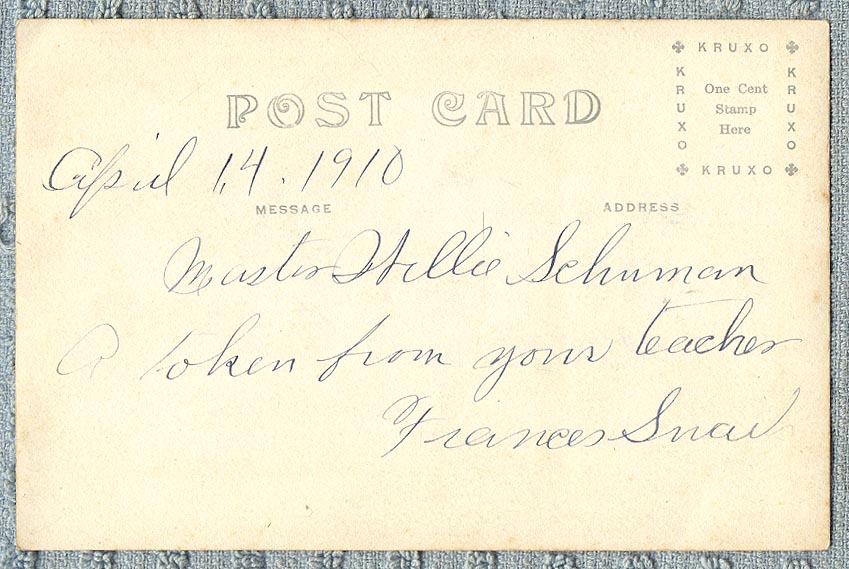 KRUXO
KRUXO
One Cent
Stamp
Here
KRUXO
KRUXO
POST CARD
April 14. 1910
MESSAGE
ADDRESS
Master Willie Schuman
A token from your teacher
Frances Snow